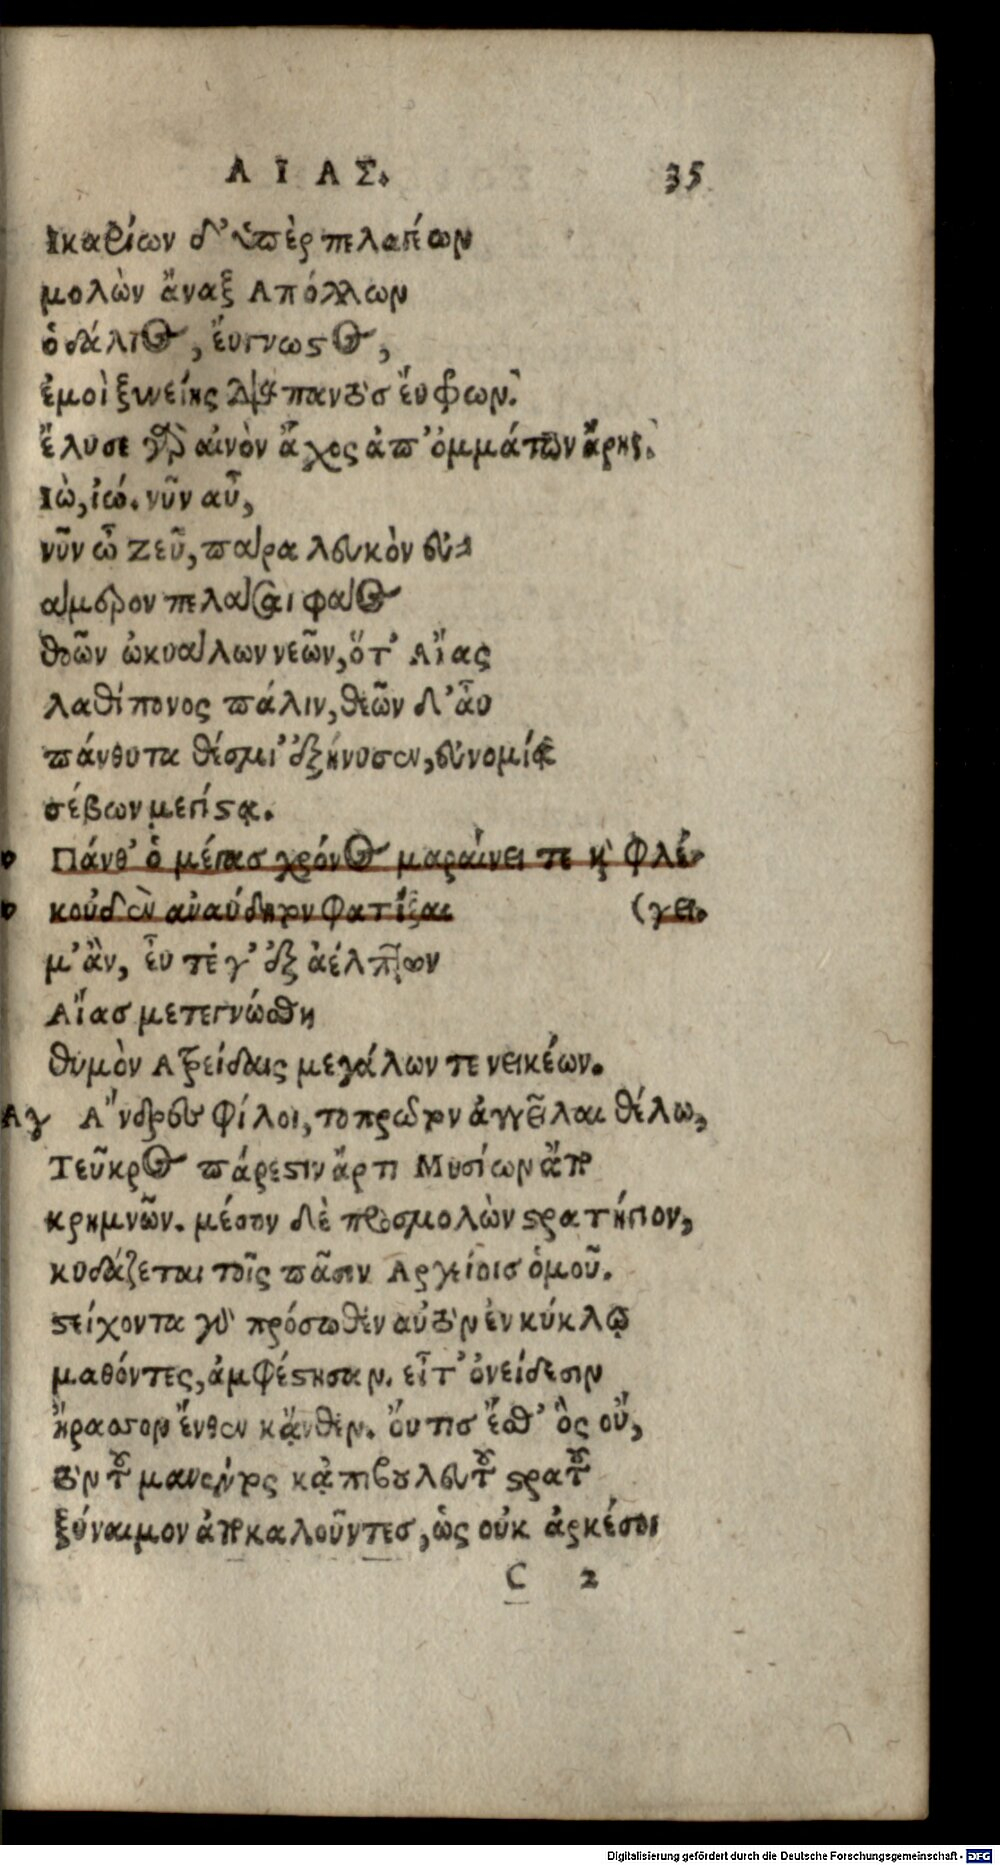 ΑΙΑΣ. 35
Ικαρίων δ' ὑπὲρ πελαγέων
μολὼν ἄναξ Απόλλων
ὁ δάλιος, ἔυγνωστος,
ἐμοὶ ξυνείης διὰ παντὸσ ἔυφρων.
ἔλυσε γὰρ αἰνὸν ἄχος ἀπ' ὀμμάτων ἄρης.
Ιὼ, ἰώ. νῦν αὖ,
νῦν ὦ Ζεῦ, πάρα λευκὸν εὐ-
άμερον πελάσαι φάος
θοῶν ὠκυάλων νεῶν, ὅτ' Αἴας
λαθίπονος πάλιν, θεῶν δ' ἆυ
πάνθυτα θέσμι' ἐξήνυσεν, εὐνομίᾳ
σέβων μεγίστᾳ.
Πάνθ' ὁ μέγασ χρόνος μαραίνει τε καὶ φλέ-
κοὐδὲν ἀναύδητον φατίξαι (γει.
μ' ἂν, εὖ τέ γ' ἐξ ἀέλπτων
Αἴασ μετεγνώσθη
θυμὸν Ατρείδαις μεγάλων τε νεικέων.
Αγ Α῎νδρες φίλοι, τοπρῶτον ἀγγεῖλαι θέλω,
Τεῦκρος πάρεστιν ἄρτι Μυσίων ἀπὸ
κρημνῶν. μέσον δὲ προσμολὼν στρατήγιον,
κυδάζεται τοῖς πᾶσιν Αργείοισ ὁμοῦ.
στείχοντα γὰρ πρόσωθεν αὐτὸν ἐν κύκλῳ
μαθόντες, ἀμφέστησαν. εἶτ' ὀνείδεσιν
ἤρασσον ἔνθεν κᾄνθεν. ὄυτισ ἔσθ' ὃς οὔ,
τὸν τοῦ μανέντος κᾀπιβουλευτοῦ στρατοῦ
ξύναιμον ἀποκαλοῦντεσ, ὡς οὐκ ἀρκέσοι
C 2
Digitalisierung gefördert durch die Deutsche Forschungsgemeinschaft - DFG